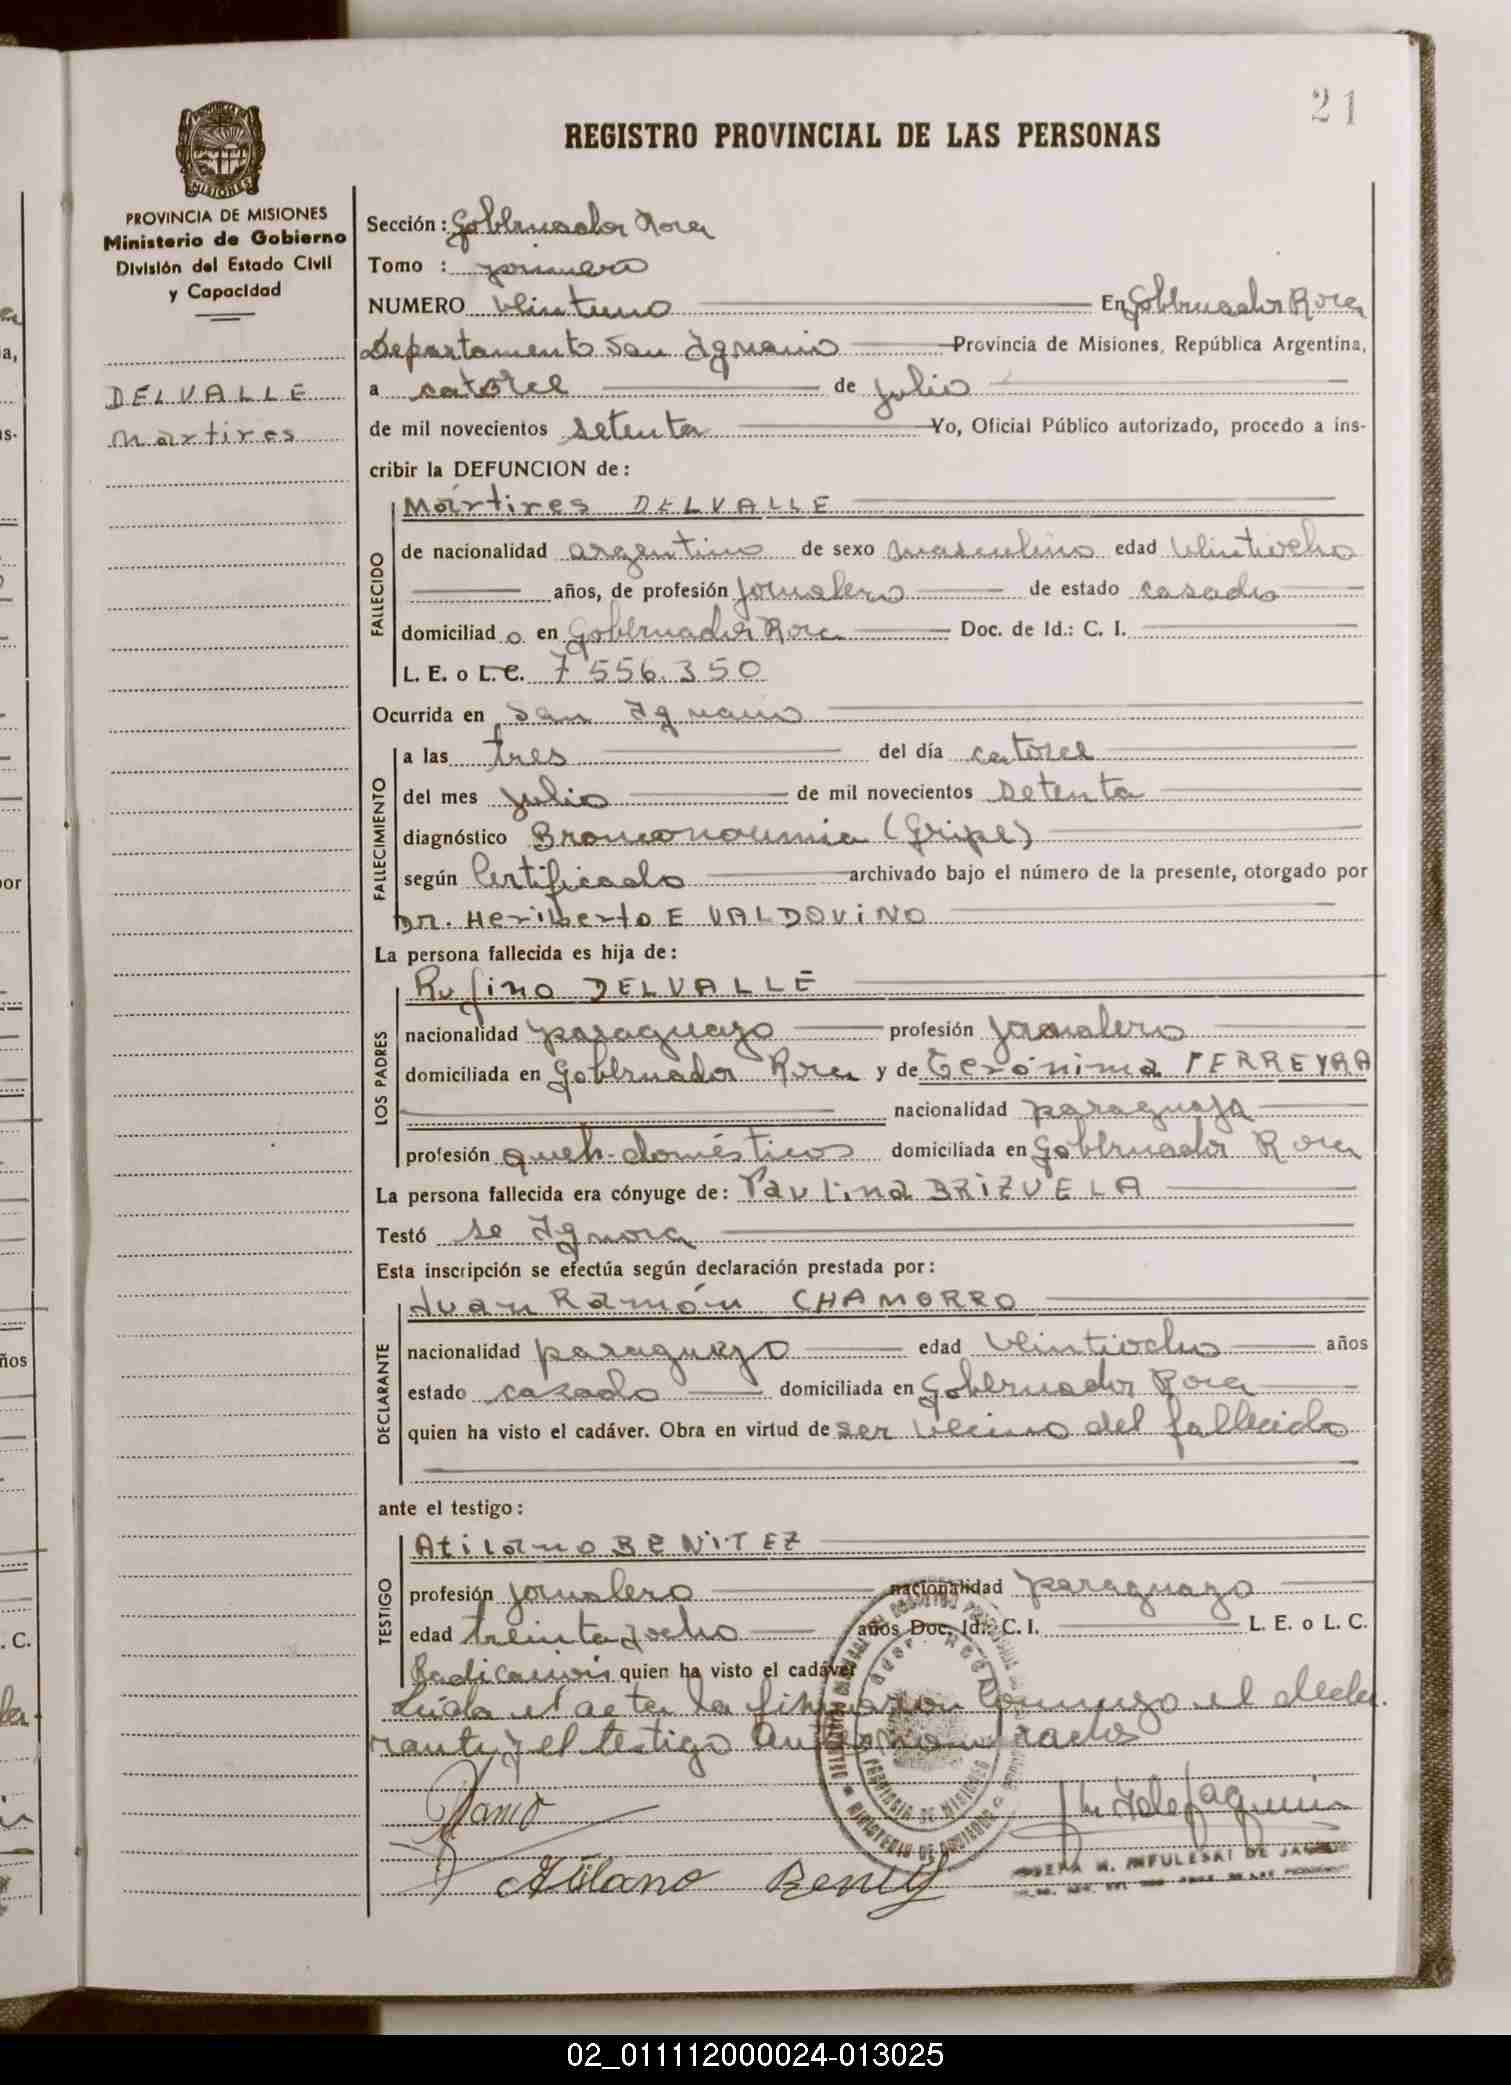 21
REGISTRO PROVINCIAL DE LAS PERSONAS
PROVINCIA DE MISIONES
Ministerio de Gobierno
División del Estado Civil
y Capacidad
DELVALLE
Martires
Sección: Gobernador Roca
Tomo : primero
NUMERO veintuno En Gobernador Roca
Departamento San Ignacio Provincia de Misiones, República Argentina,
a catorce de julio
de mil novecientos setenta Yo, Oficial Público autorizado, procedo a ins-
cribir la DEFUNCION de:
Mártires DELVALLE
FALLECIDO
de nacionalidad argentino de sexo masculino edad veintiocho
años, de profesión jornalero de estado casado
domiciliad o en Gobernador Roca Doc. de Id.: C. I.
L. E. o L. C. 7 556.350
Ocurrida en San Ignacio
FALLECIMIENTO
a las tres del día catorce
del mes julio de mil novecientos setenta
diagnóstico Bronconeumia (Gripe)
según Certificado archivado bajo el número de la presente, otorgado por
DR. Heriberto E VALDOVINO
La persona fallecida es hija de:
LOS PADRES
Rufino DELVALLE
nacionalidad paraguayo profesión jornalero
domiciliada en Gobernador Roca y de Gerónima FERREYRA
nacionalidad paraguaya
profesión queh-domésticos domiciliada en Gobernador Roca
La persona fallecida era cónyuge de: Paulina BRIZUELA
Testó se Ignora
Esta inscripción se efectúa según declaración prestada por:
DECLARANTE
Juan Ramón CHAMORRO
nacionalidad paraguayo edad veintiocho años
estado casado domiciliada en Gobernador Roca
quien ha visto el cadáver. Obra en virtud de ser vecino del fallecido
ante el testigo:
TESTIGO
Atilano BENITEZ
profesión jornalero nacionalidad paraguayo
edad treinta y ocho años Doc. Id.: C. I. L. E. o L. C.
Radicación quien ha visto el cadáver
Leída el acta la firmaron conmigo el decla-
rante y el testigo
PROVINCIA DE MISIONES
MINISTERIO DE GOBIERNO
Atilano Benitez
DE
02_011112000024-013025